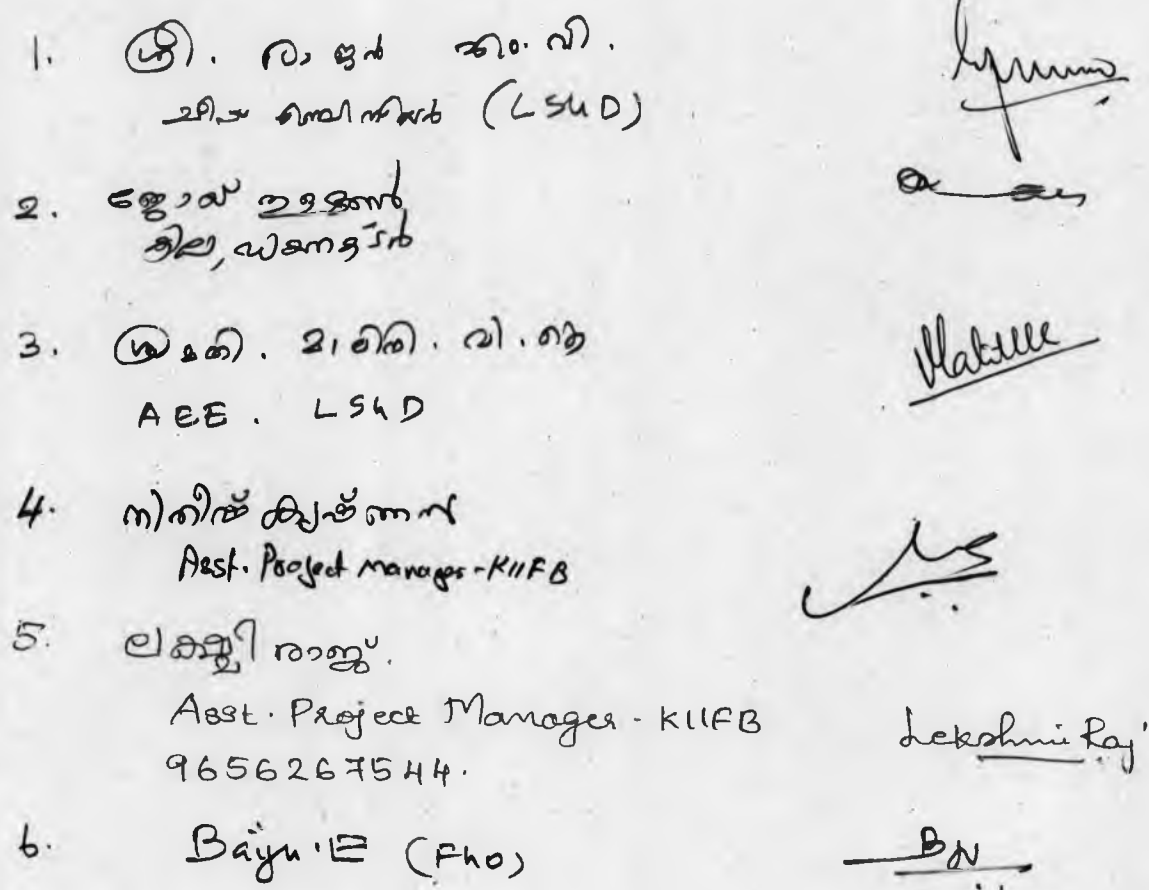 1. ശ്രീ. രാജൻ എം. വി.
ചീഫ് എഞ്ചിനീയർ (LSGD)
2. ജോയ് ഇളമൺ
കില, ഡയറക്ടർ
3. ശ്രീമതി. വി. ഐ
AEE. LSGD
4. നിതീഷ് കൃഷ്ണൻ
Asst. Project Manager-KIIFB
5. ലക്ഷ്മി രാജ്.
Asst. Project Manager - KIIFB
Lekshmi Raj
9656267544.
6. (FMO)